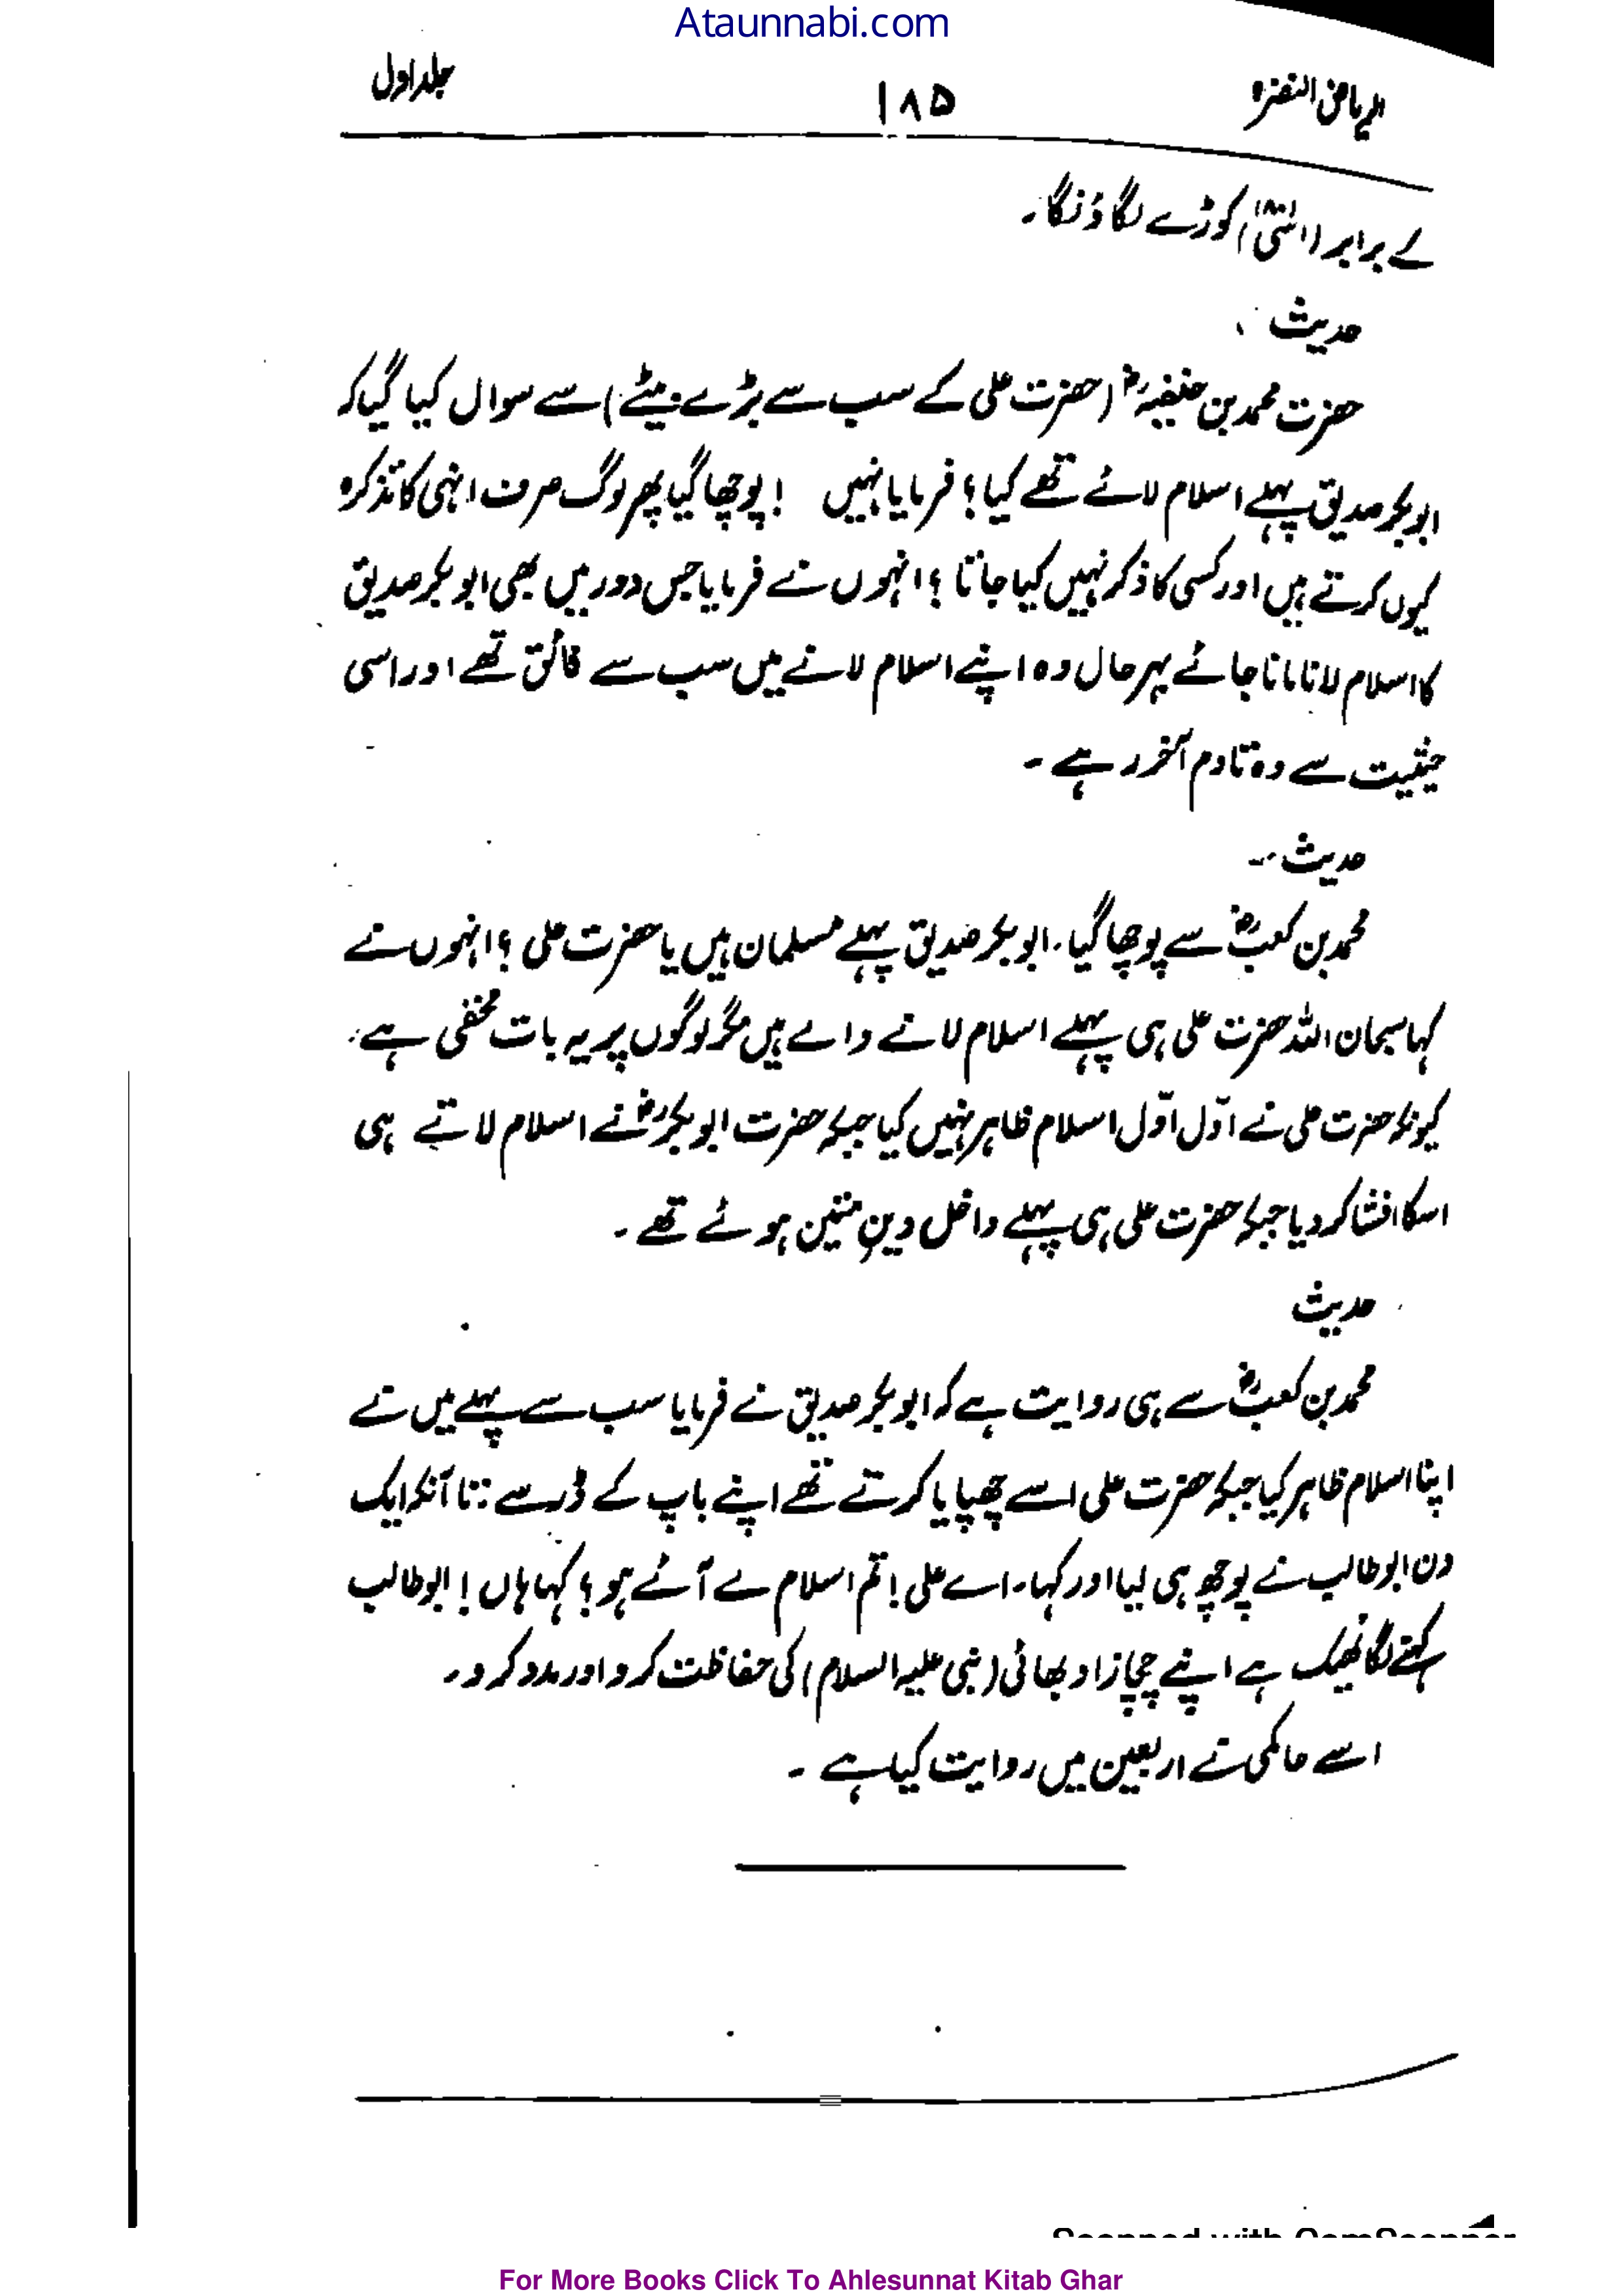 Ataunnabi.com
الریاض النضرہ ۱۸۵ جلد اول
کے برابر (اسّی) کوڑے لگاؤنگا۔
حدیث
حضرت محمد بن حنیفہؓ (حضرت علی کے سب سے بڑے بیٹے) سے سوال کیا گیا کہ
ابوبکر صدیق پہلے اسلام لائے تھے کیا؟ فرمایا نہیں ! پوچھا گیا پھر لوگ صرف انہی کا تذکرہ
کیوں کرتے ہیں اور کسی کا ذکر نہیں کیا جاتا ؟ انہوں نے فرمایا جس دور میں بھی ابو بکر صدیق
کا اسلام لانا مانا جائے بہر حال وہ اپنے اسلام لانے میں سب سے فائق تھے اور اسی
حیثیت سے وہ تادم آخر رہے ۔
حدیث ۔
محمد بن کعبؓ سے پوچھا گیا ۔ ابو بکر صدیق پہلے مسلمان ہیں یا حضرت علی ؟ انہوں نے
کہا سبحان اللہ حضرت علی ہی پہلے اسلام لانے والے ہیں مگر لوگوں پر یہ بات مخفی ہے ۔
کیونکہ حضرت علی نے اوّل اوّل اسلام ظاہر نہیں کیا جبکہ حضرت ابو بکرؓ نے اسلام لاتے ہی
اسکا افشا کر دیا جبکہ حضرت علی ہی پہلے داخل دینِ متین ہوئے تھے ۔
حدیث
محمد بن کعبؓ سے ہی روایت ہے کہ ابو بکر صدیق نے فرمایا سب سے پہلے میں نے
اپنا اسلام ظاہر کیا جبکہ حضرت علی اسے چھپایا کرتے تھے اپنے باپ کے ڈر سے : تا آنکہ ایک
دن ابو طالب نے پوچھ ہی لیا اور کہا ۔ اے علی ! تم اسلام لے آئے ہو ؟ کہا ہاں ! ابو طالب
کہنے لگا ٹھیک ہے اپنے چچا زاد بھائی (نبی علیہ السلام) کی حفاظت کرو اور مدد کرو ۔
اسے حاکمی نے اربعین میں روایت کیا ہے ۔
Scanned with CamScanner
For More Books Click To Ahlesunnat Kitab Ghar